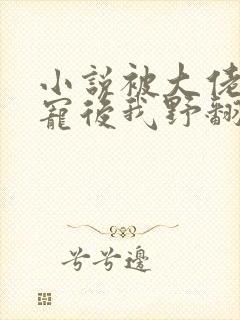 小說被大佬
寵後我野翻
兮兮邊